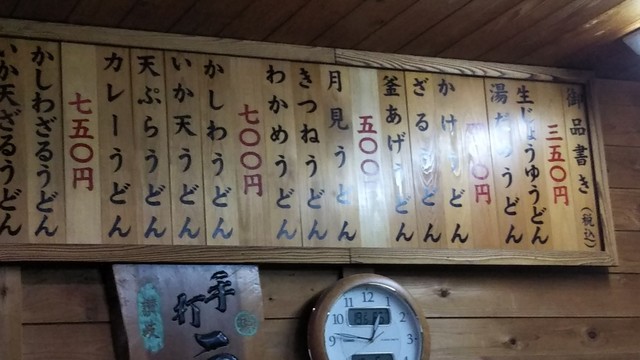 御品書き(税込)
三五〇円
生じょうゆうどん
湯だめうどん
〇円
かけうどん
ざるうどん
釜あげうどん
五〇〇
月見うどん
きつねうどん
わかめうどん
七〇〇円
かしわうどん
いか天うどん
天ぷらうどん
カレーうどん
七五〇円
かしわざるうどん
いか天ざるうどん
手打
讃岐
11 12 1
10
9